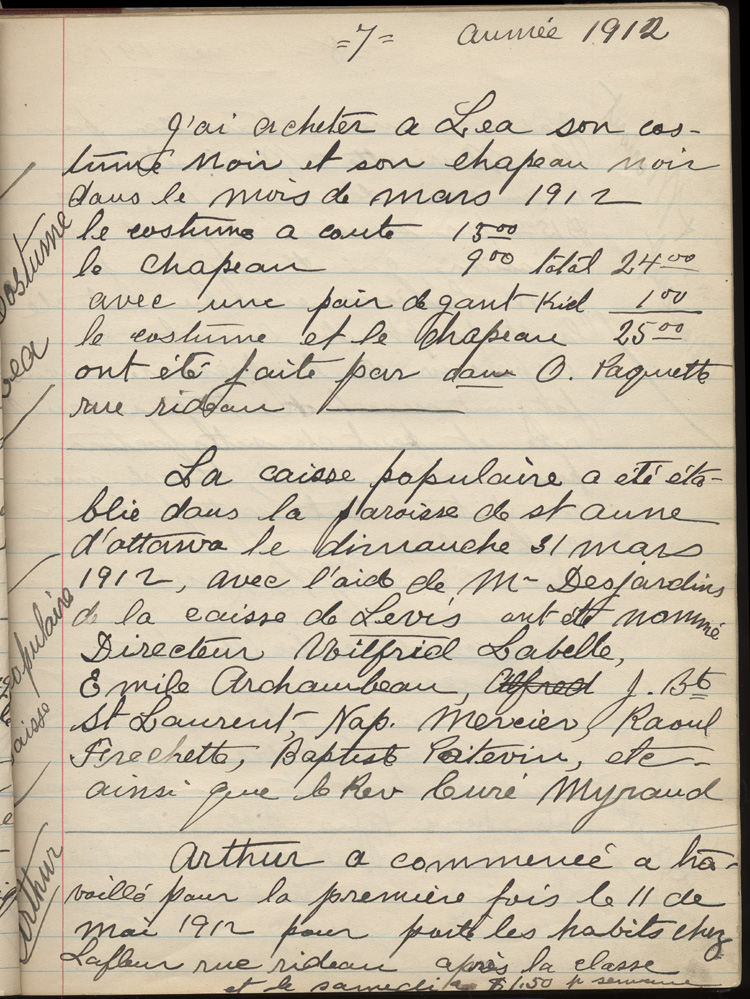 =7= année 1912
J'ai acheter a Lea son cos-
tume noir et son chapeau noir
dans le mois de mars 1912
le costume a couté 15.00
le chapeau 9.00 total 24.00
avec une pair de gant Kid 1.00
le costume et le chapeau 25.00
ont été faite par dame O. Paquette
rue rideau
La caisse populaire a été éta-
blie dans la paroisse de st anne
d'ottawa le dimanche 31 mars
1912, avec l'aide de Mr Desjardins
de la caisse de Levis ont été nommé
Directeur Wilfrid Labelle,
Emile Archambeau, Alfred J. Bte
St Laurent, Nap. Mercier, Raoul
Frechette, Baptiste Poitevin, etc-
ainsi que le Rev Curé Myrand
Arthur a commencé a tra-
vaillé pour la première fois le 11 de
mai 1912 pour porté les habits chez
Lafleur rue rideau après la classe
et le samedi $1.50 p semaine
costume
Lea
populaire
caisse
Arthur